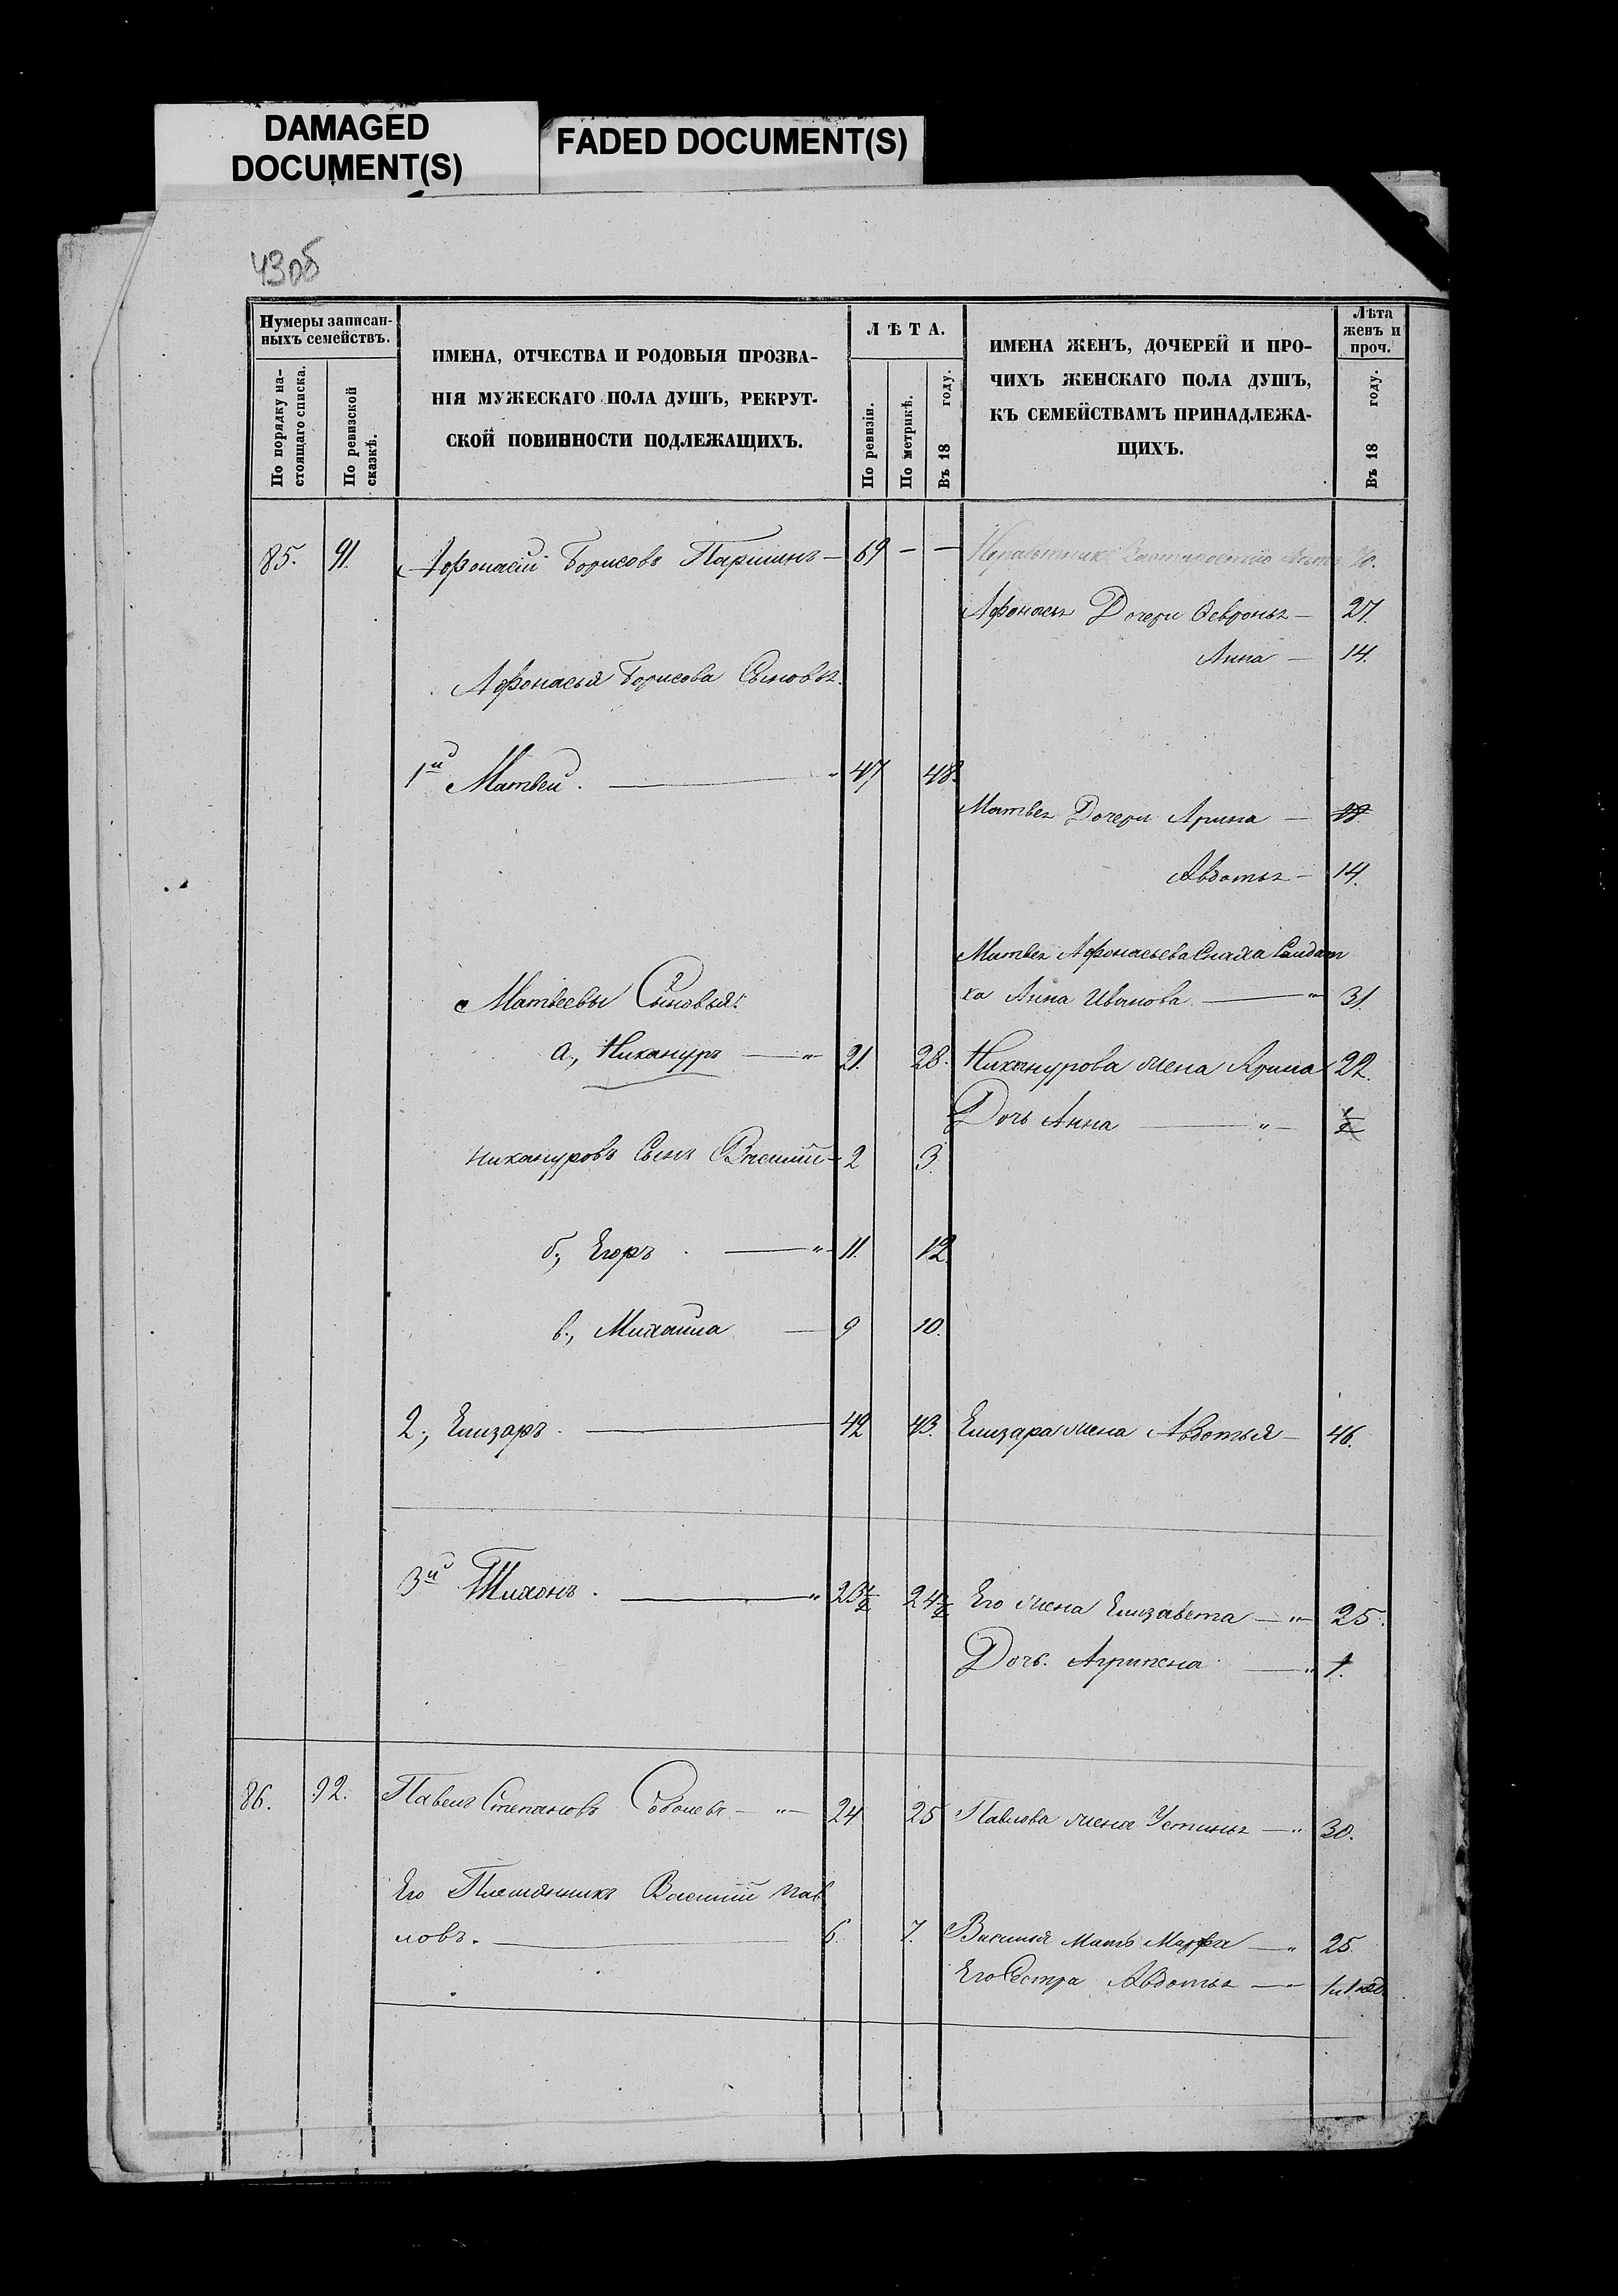 DAMAGED
DOCUMENT(S)
FADED DOCUMENT(S)
43об
Нумеры записан-
ныхъ семействъ.
По порядку на-
стоящаго списка.
По ревизской
сказкѣ.
ИМЕНА, ОТЧЕСТВА И РОДОВЫЯ ПРОЗВА-
НІЯ МУЖЕСКАГО ПОЛА ДУШЪ, РЕКРУТ-
СКОЙ ПОВИННОСТИ ПОДЛЕЖАЩИХЪ.
ЛѢТА.
По ревизіи.
По метрикѣ.
Въ 18 году.
ИМЕНА ЖЕНЪ, ДОЧЕРЕЙ И ПРО-
ЧИХЪ ЖЕНСКАГО ПОЛА ДУШЪ,
КЪ СЕМЕЙСТВАМЪ ПРИНАДЛЕЖА-
ЩИХЪ.
Лѣта
женъ и
проч.
Въ 18 году.
85. 91. Афонасій Борисовъ Паршинъ — 69 — —
Афонасья Дочери Февронья — 27.
Анна — 14.
Афонасья Борисова Сыновья
1й Матвей. — " 47 48.
Матвея Дочери Арина — 18.
Авдотья — 14.
Матвея Афонасьева Снаха Салдат
ка Анна Иванова — " 31.
Матвеевы Сыновья:
а., Никануръ — " 21. 28. Никанурова жена Арина 22.
Дочь Анна — " — 1/2
Никануровъ Сынъ Василий — 2 3.
б., Егоръ — " 11. 12.
в., Михаила — 9 10.
2., Елизаръ. — 42 43. Елизара жена Авдотья — 46.
3й Тихонъ. — " 23 1/2 24 1/2 Его жена Елизавета — " — 25.
Дочь. Агрипена — " 1.
86. 92. Павелъ Степановъ Соболевъ — " — 24 25 Павлова жена Устинья — " 30.
Его Племянникъ Василий Пав
ловъ. — 6. 7. Василья мать Марфа — " 25.
Его Сестра Авдотья — "